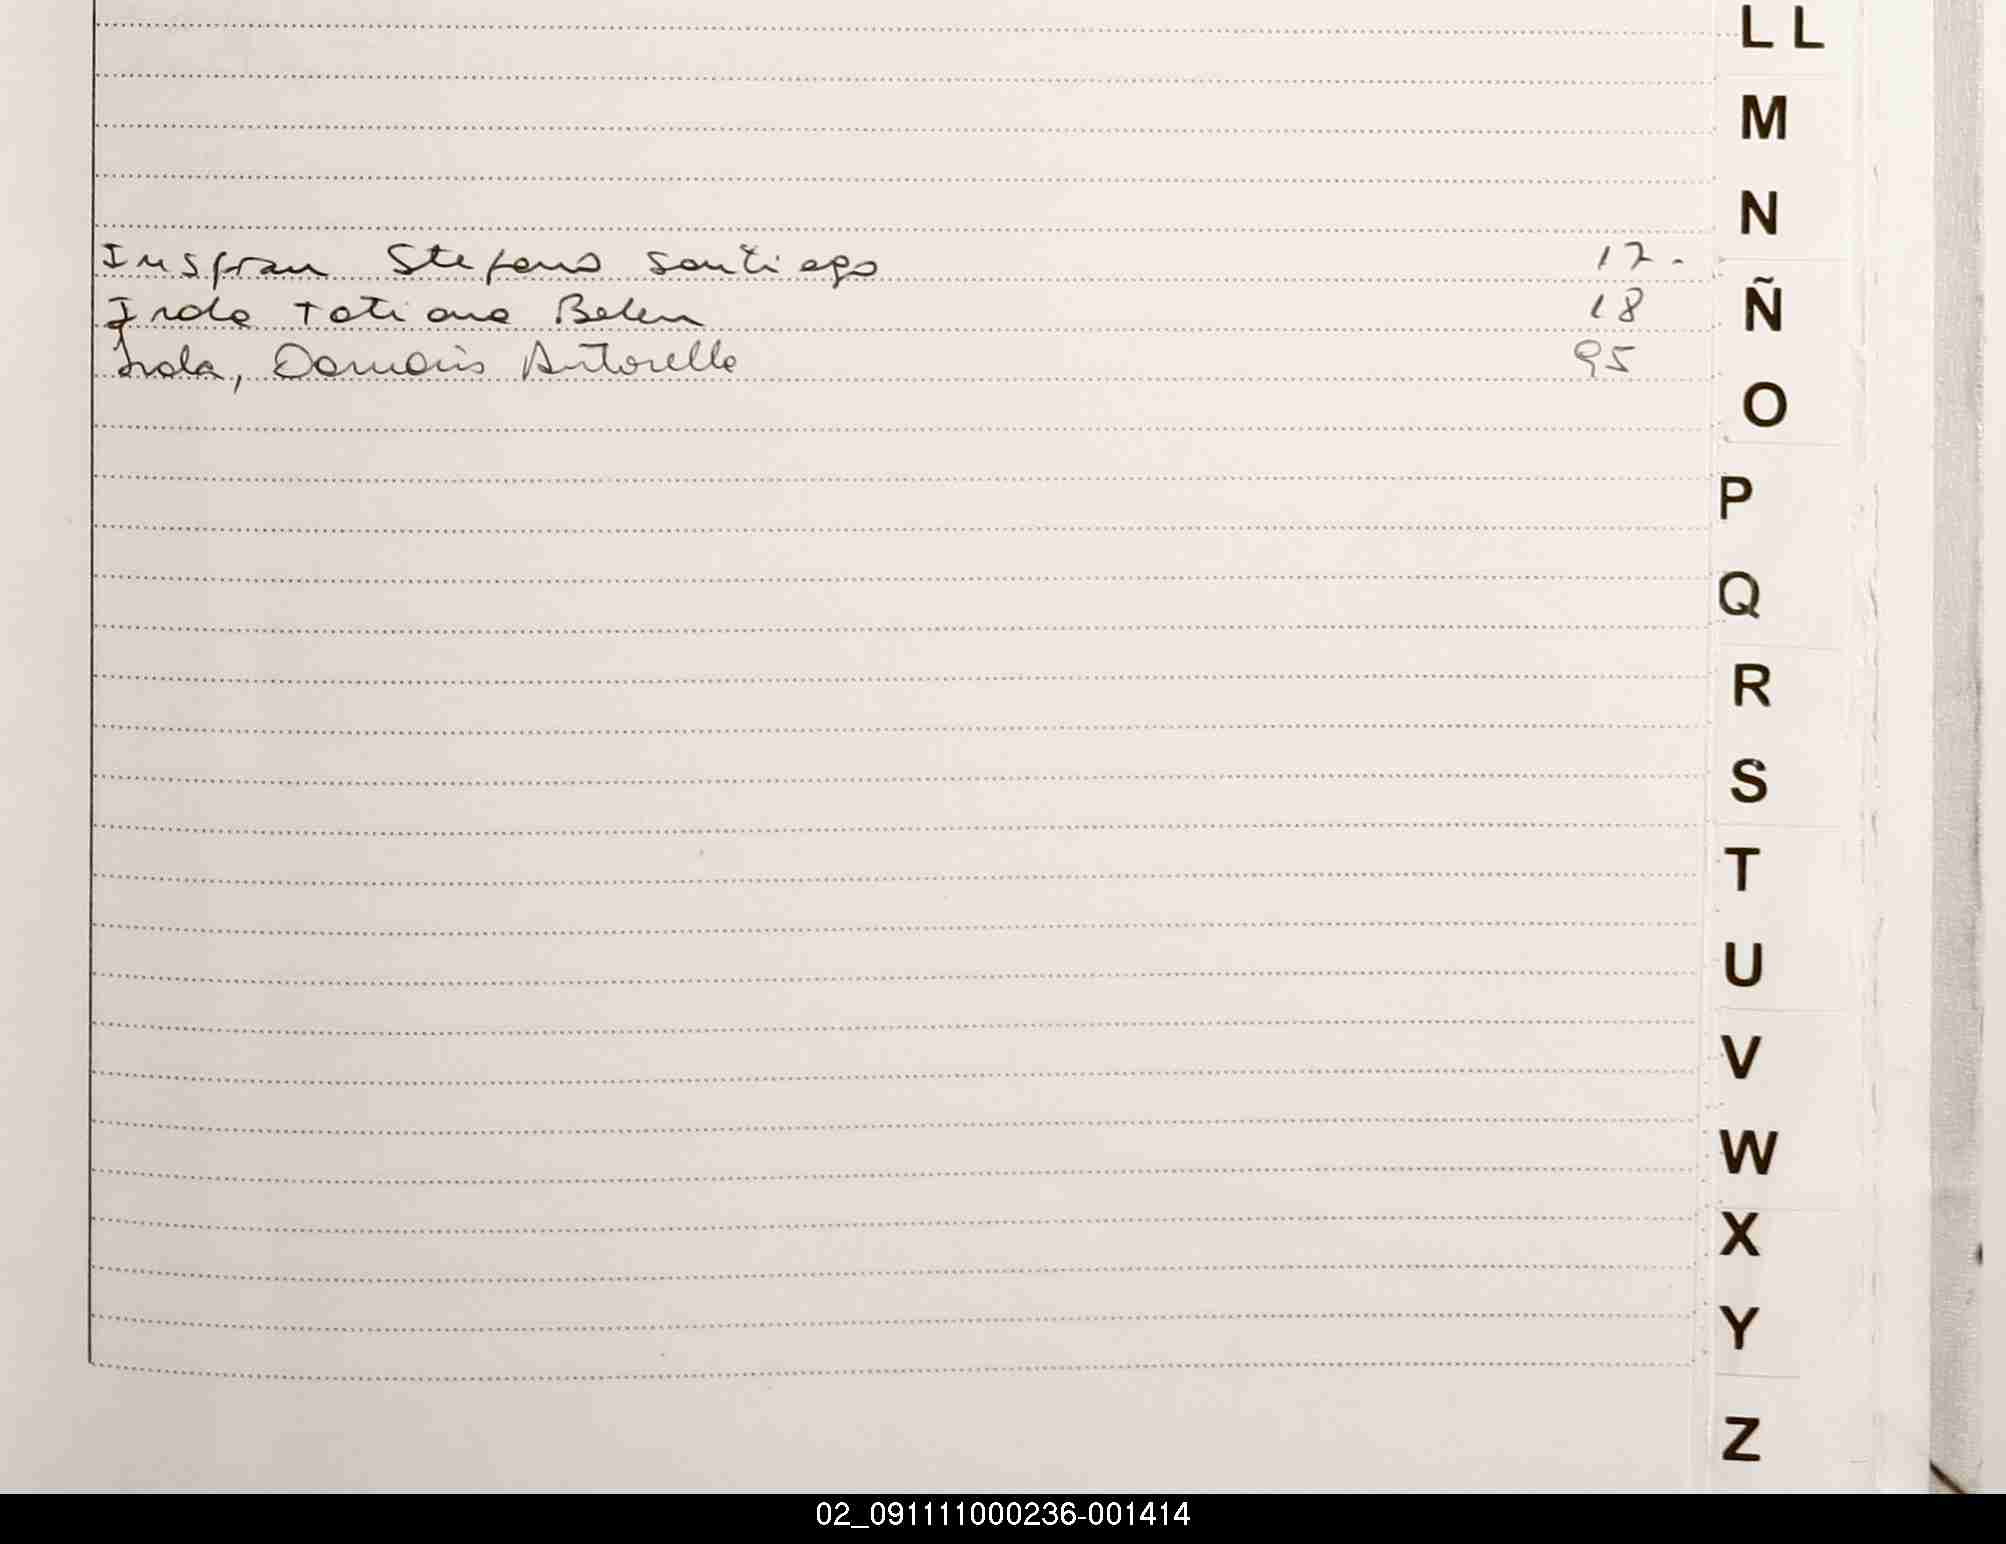 LL
M
N
Insfran Stefano Santiago 17.
Ñ
Irala Tatiana Belen 18
Irala, Damaris Antorella 95
O
P
Q
R
S
T
U
V
W
X
Y
Z
02_091111000236-001414